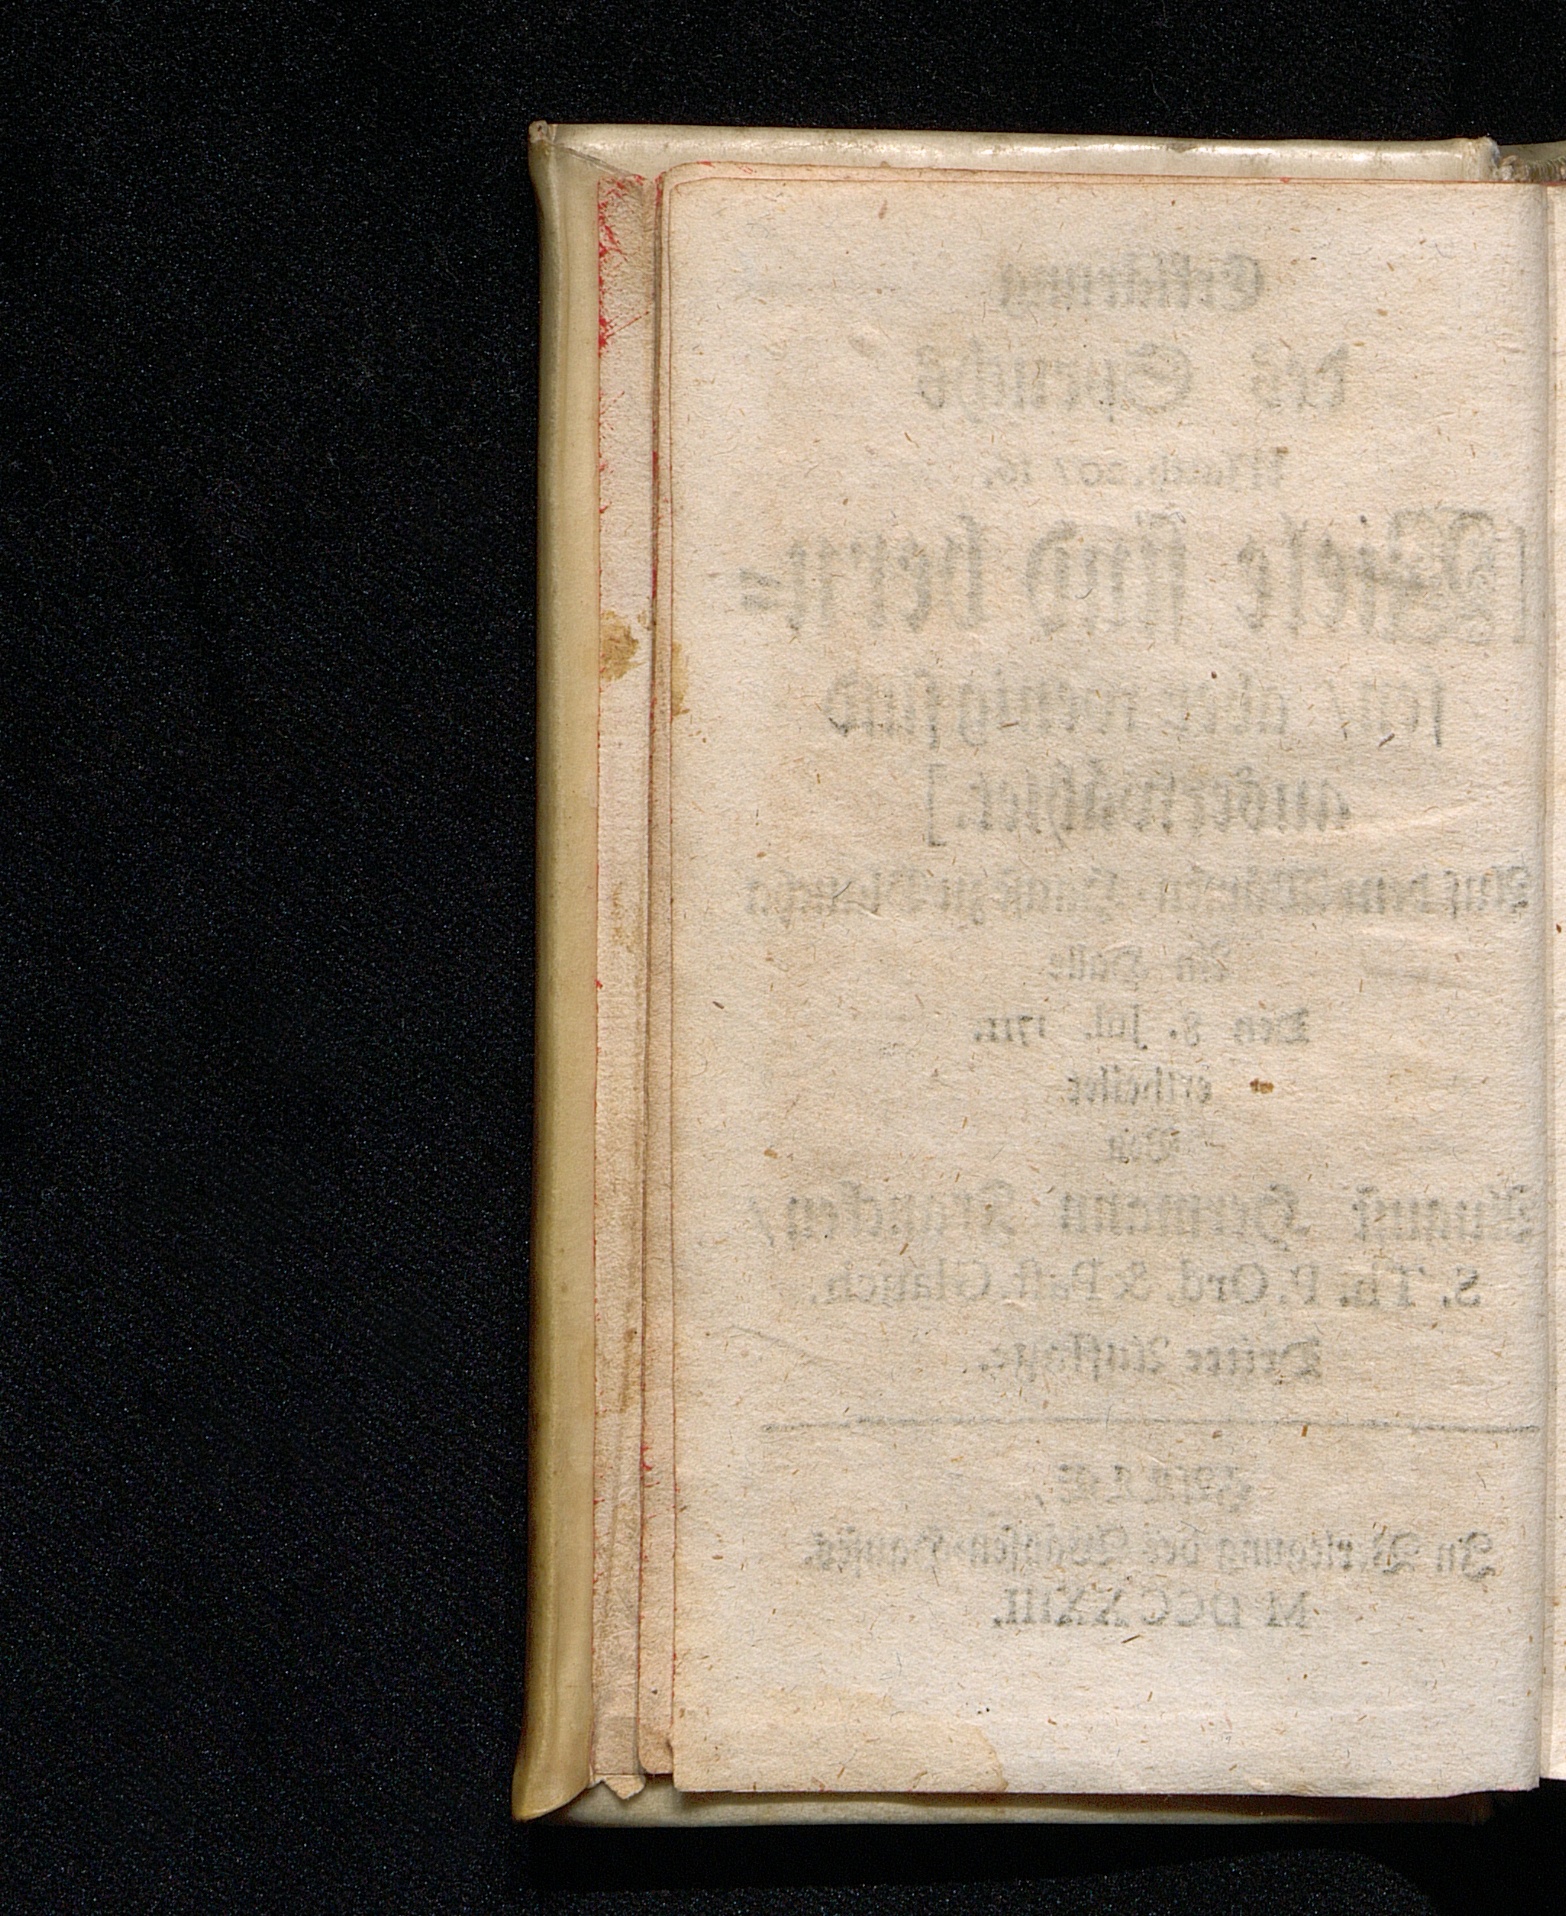 Erklärung
des Spruchs
Matth. 20/ 16.
[Viele sind beru-
fen/ aber wenig sind
auserwählet.]
Auf dem Wäysen-Hause zu Glaucha
an Halle
Den 8. Jul. 1711.
ertheilet
Von
August Hermann Francken/
S. Th. P. Ord. & Past. Glauch.
Dritte Aufflage.
HALLE,
In Verlegung des Wäysen-Hauses.
M DCC XXIII.